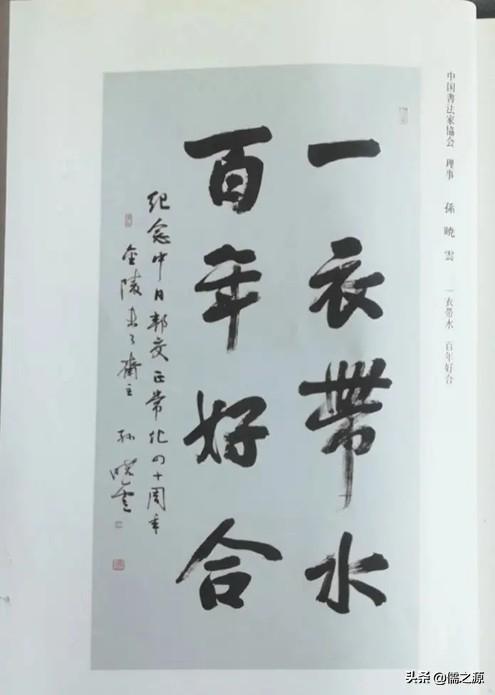 中国書法家協会 理事 孫曉雲 一衣帯水 百年好合
一衣帶水
百年好合
纪念中日邦交正常化四十周年
金陵
孙晓云
头条 @儒之源